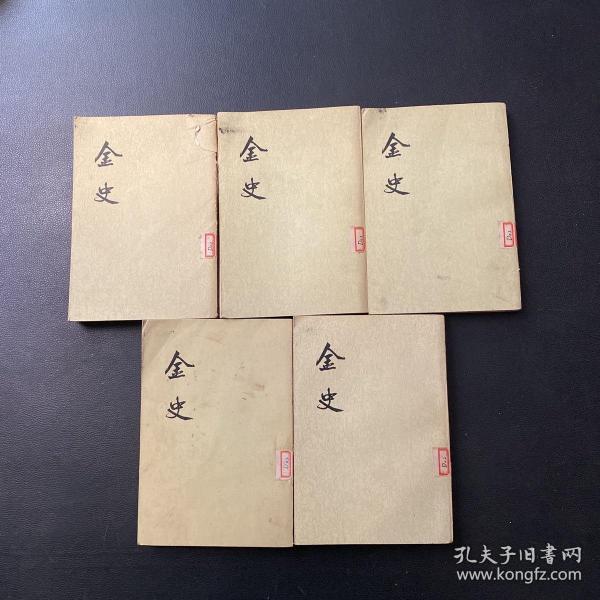 金史
金史
金史
金史
金史
孔夫子旧書网
www.kongfz.com